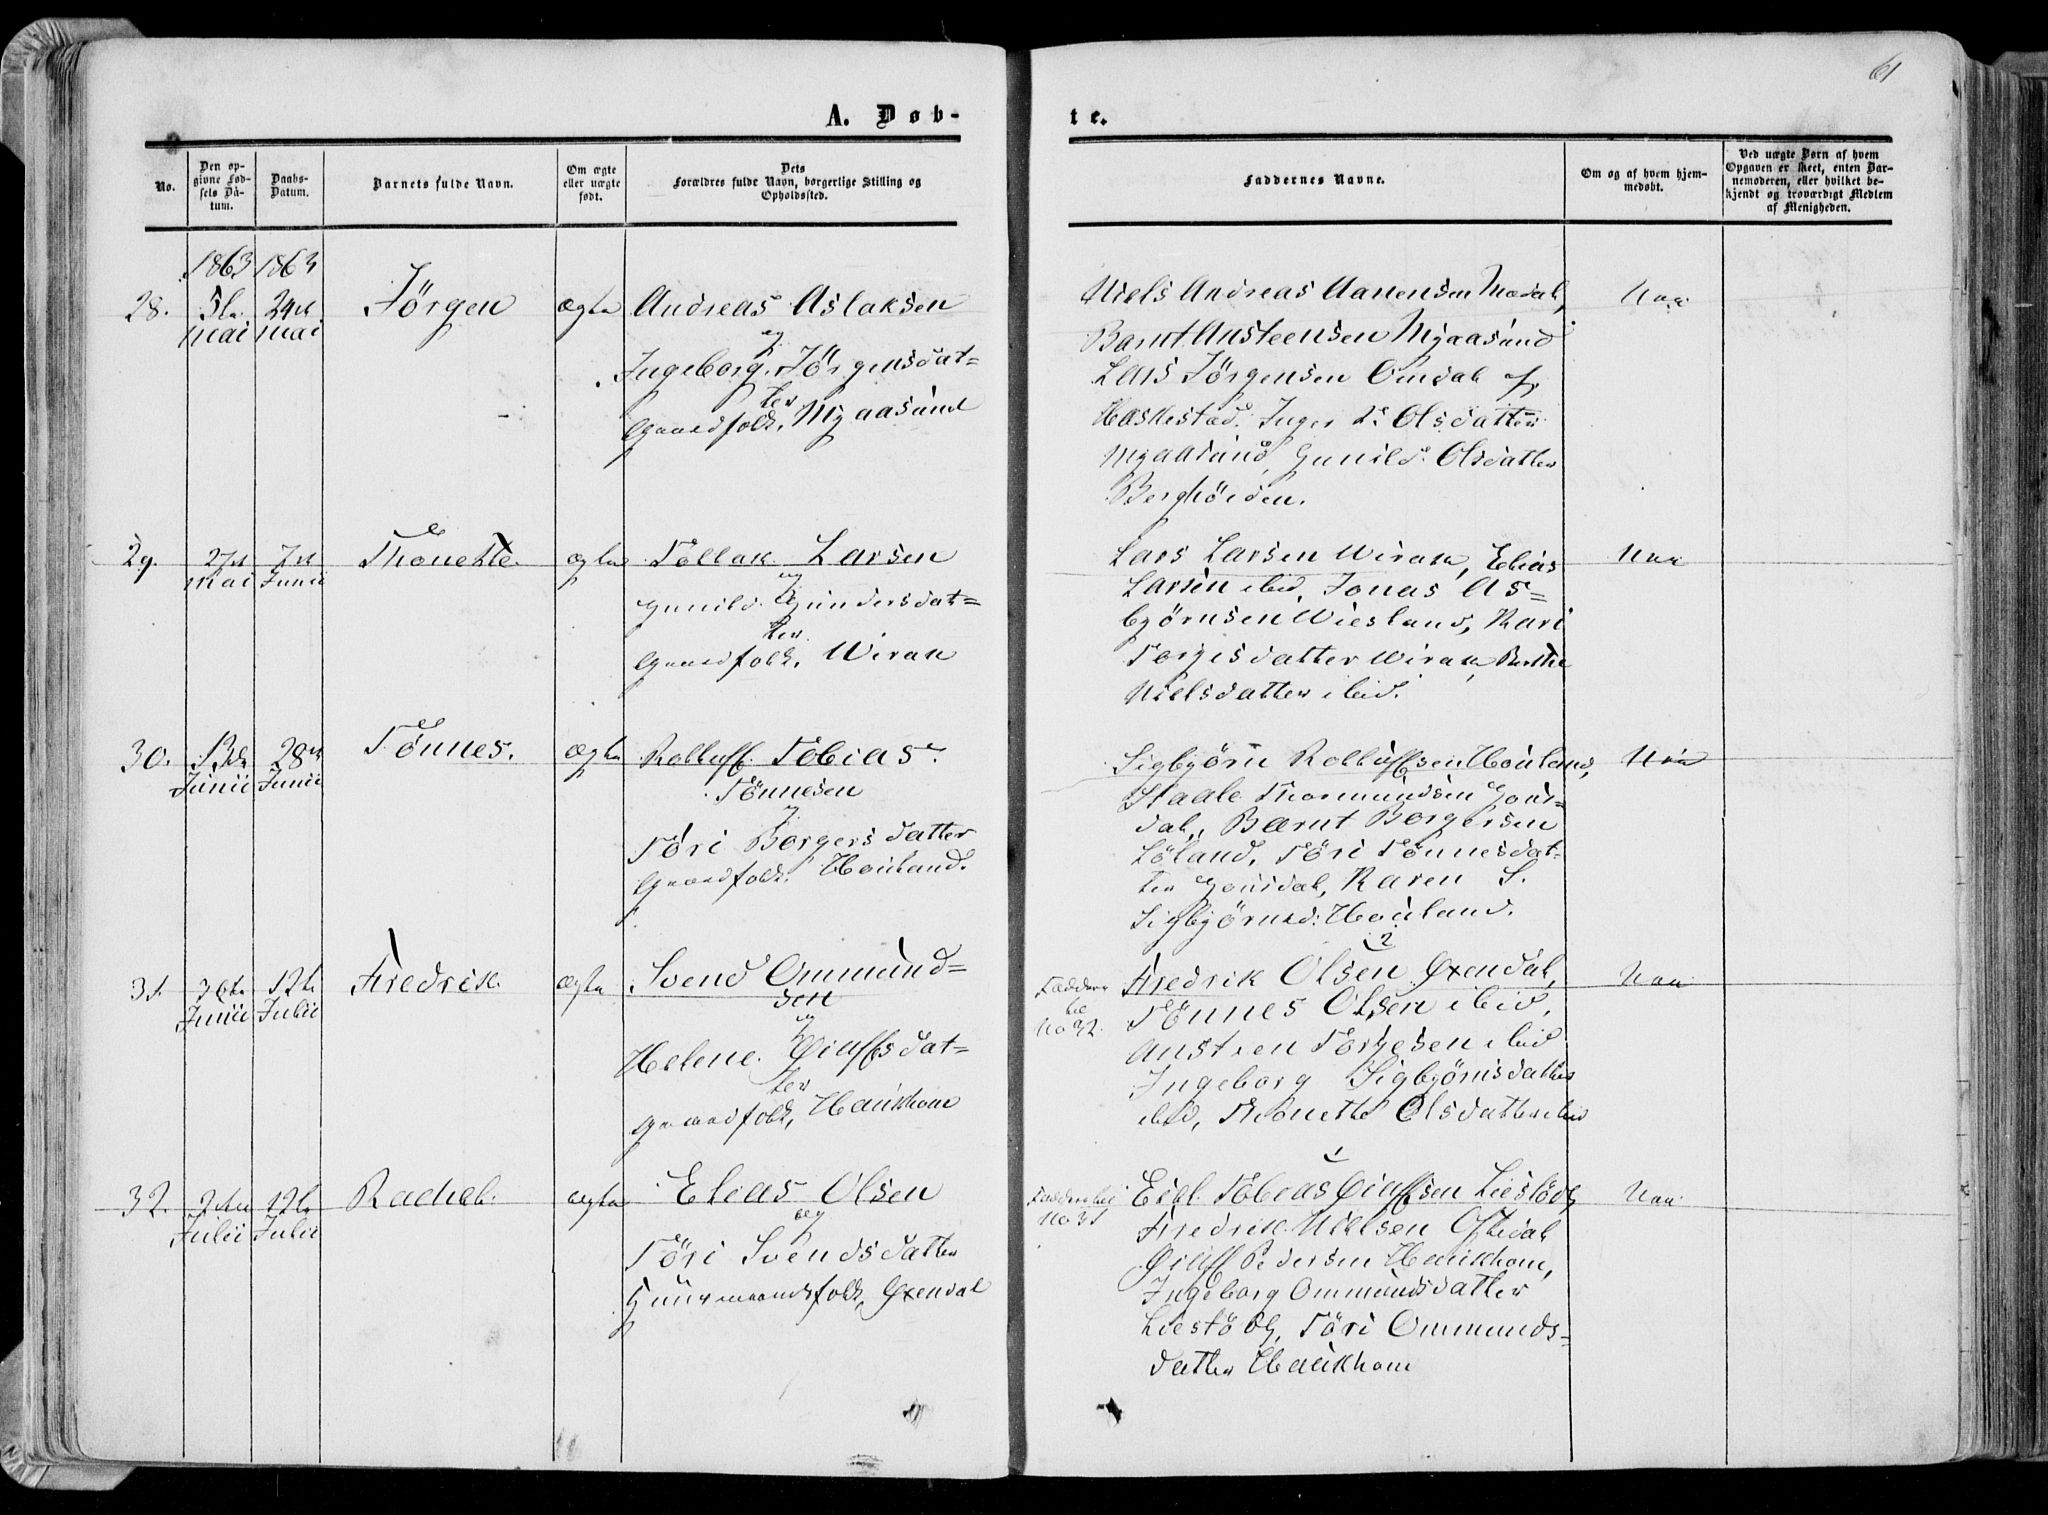 61
A. Døb-
te.
No.
Den op-
givne Fød-
sels Da-
tum.
Daabs-
Datum.
Barnets fulde Navn.
Om ægte
eller uægte
født.
Dets
Forældres fulde Navn, borgerlige Stilling og
Opholdssted.
Faddernes Navne.
Om og af hvem hjem-
medøbt.
Ved uægte Børn af hvem
Opgaven er skeet, enten Bar-
nemoderen, eller hvilket be-
kjendt og troværdigt Medlem
af Menigheden.
1863 1863
28. 5te 24de Jörgen ægte Andreas Aslaksen
mai mai og
Ingeborg Jörgensdat=
ter
Gaardfolk, Mgaasund
Niels Andreas Aanensen Mydal, Naa
Barnt Ansteensen Mgaasund
Lars Jörgensen Omdal af
Haskestad. Inger Olsdatter
Mgaasund, Gunild Olsdatter
Berghöiden.
29. 27de 7de Thonette. ægte Tollak Larsen
mai Junii og
Gunild Gundersdat=
ter
Gaardfolk, Wirak
Lars Larsen Wirak, Elias Naa
Larsen ibid, Jonas As=
bjørnsen Wiesland, Kari
Torgisdatter Wirak, Berthe
Nielsdatter ibid.
30. 13de 28de Tönnes. ægte Rolluff Tobias
Junii Junii Tönnesen
og
Töri Borgersdatter
Gaardfolk. Houland.
Sigbjörn Rolluffsen Houland, Naa
Staale Thormundsen Gous=
dal, Barnt Borgersen
Löland, Töri Tönnesdat=
ter Gousdal, Karen S.
Sigbjörnsd: Houland.
31. 30te 12te Fredrik. ægte Svend Ommund=
Junii Julii sen
og
Helene Oluffsdat=
ter
Gaardfolk, Haukhom
Faddere
til
No 32.
2
Fredrik Olsen Øxendal, Naa
Tönnes Olsen ibid,
Ansteen Torgesen ibid
Ingeborg Sigbjörnsdatter
ibid, Thonette Olsdatter ibid
32. 2den 12te Rachel. ægte Elias Olsen
Julii Julii og
Töri Svendsdatter
Huusmandsfolk, Øxendal
Faddere til
No 31
1
Tobias Oluffsen Liestöl, Naa
Fredrik Nielsen Oftedal
Oluff Pedersen Haukhom,
Ingeborg Ommundsdatter
Liestöl, Töri Ommunds=
datter Haukhom